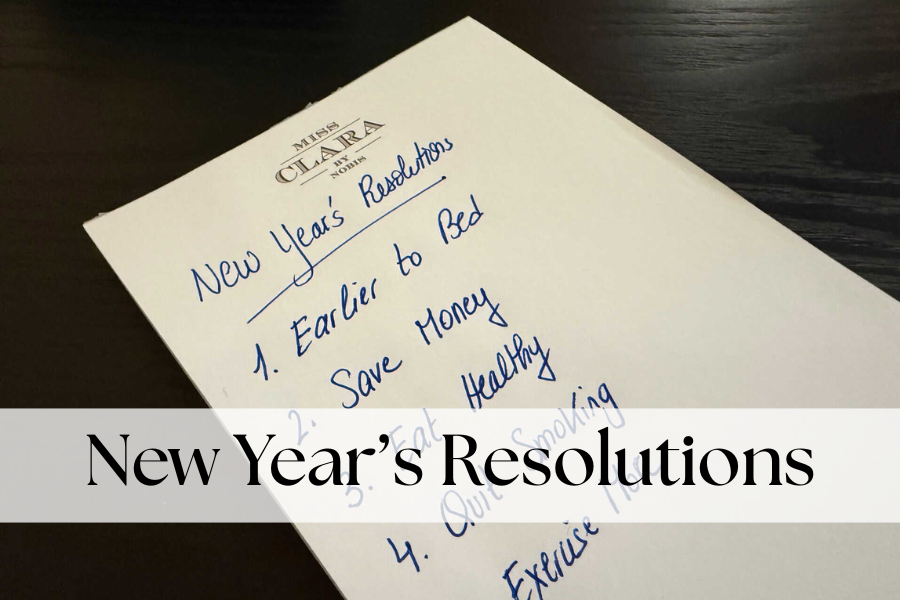 MISS
CLARA
BY
NOBIS
New Year's Resolutions
1. Earlier to Bed
2. Save Money
3. Eat Healthy
4. Quit Smoking
Exercise More
New Year's Resolutions